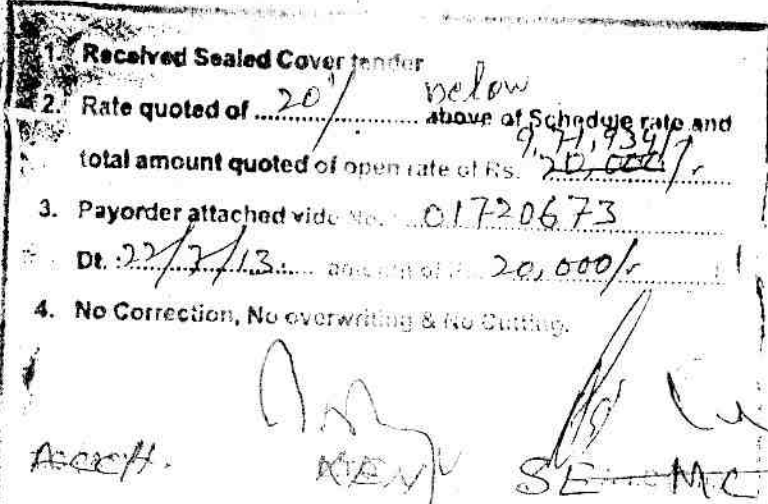 1. Received Sealed Cover tender
below
2. Rate quoted of 20% above of Schedule rate and
9,71,934/-
total amount quoted of open rate of Rs. 20,000/-
3. Payorder attached vide No. 01720673
Dt. 22/7/13 amount of Rs. 20,000/-
4. No Correction, No overwriting & No Cutting.
XEN SE MC